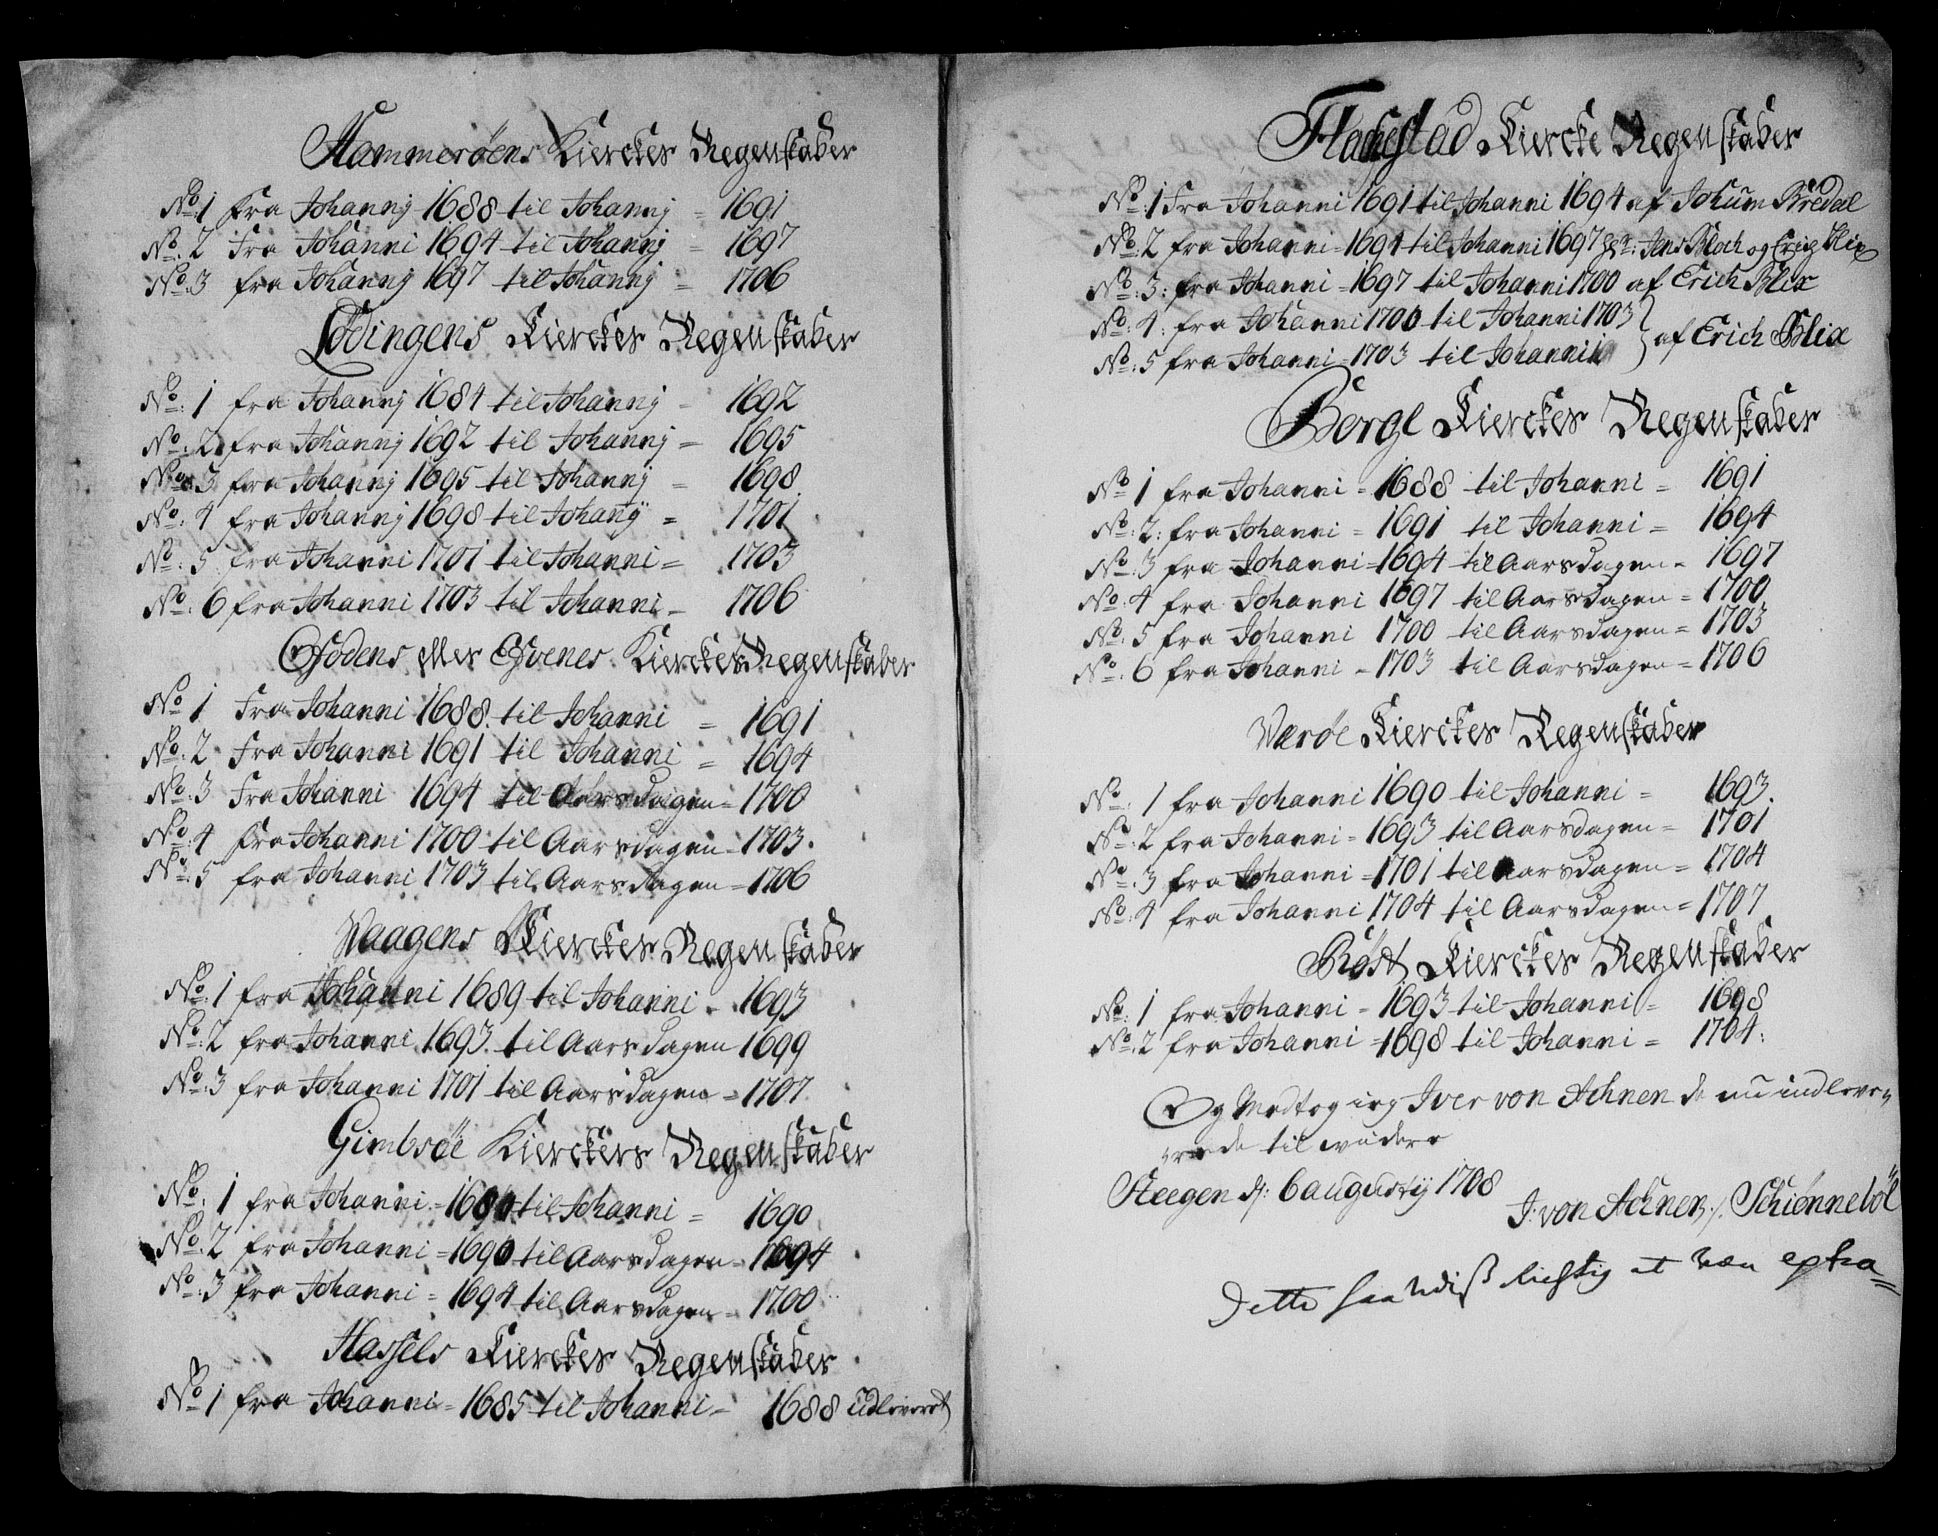 Hammerøens Kierckes Regenskaber
No: 1 Fra Johannj 1688 til Johannj = 1691
No: 2 Fra Johanni 1694 til Johannj = 1697
No: 3 fra Johannj 1697 til Johannj = 1706
Lödingens Kierckes Regenskaber
No: 1 fra Johannj 1684 til Johannj = 1692
No: 2 fra Johannj 1692 til Johannj = 1695
No: 3 fra Johannj 1695 til Johannj = 1698
No: 4 fra Johannj 1698 til Johanij = 1701
No: 5 fra Johanni 1701 til Johanni = 1703
No: 6 fra Johanni 1703 til Johanni = 1706
Ofodens eller Evenes Kierckes Regenskaber
No 1 Fra Johanni 1688 til Johanni = 1691
No: 2 Fra Johanni 1691 til Johanni = 1694
No: 3 Fra Johanni 1694 til Aarsdagen = 1700
No: 4 Fra Johanni 1700 til Aarsdagen = 1703
No: 5 fra Johanni 1703 til Aarsdagen = 1706
Waagens Kierckes Regenskaber
No: 1 fra Johanni 1689 til Johanni = 1693
No: 2 fra Johanni 1693 til Aarsdagen 1699
No: 3 fra Johanni 1701 til Aarsdagen = 1707
Gimbsøe Kierckers Regenskaber
No: 1 fra Johanni = til Johanni = 1690
No: 2 fra Johanni = 1690 til Aarsdagen = 1694
No: 3 fra Johanni = 1694 til Aarsdagen = 1700
Hassels Kierckes Regenskaber
No 1 fra Johanni = 1685 til Johanni = 1688 udleveret
Flachestad Kiercke Regenskaber
No: 1 Fra Johanni 1691 til Johanni 1694 af Jokum Bredal
No: 2 fra Johanni = 1694 til Johanni 1697 Hr: Jens Bloch og Erig Blix
No: 3: fra Johanni = 1697 til Johanni 1700 af Erich Blix
No: 4: fra Johanni 1700 til Johanni 1703
No: 5 fra Johanni = 1703 til Johanni } af Erich Blix
Borge Kierckes Regenskaber
No 1 fra Johanni = 1688 til Johanni = 1691
No: 2: fra Johanni = 1691 til Johanni = 1694
No: 3 fra Johanni = 1694 til Aarsdagen = 1697
No: 4 fra Johanni 1697 til Aarsdagen = 1700
No: 5 fra Johanni 1700 til Aarsdagen = 1703
No: 6 fra Johanni = 1703 til Aarsdagen = 1706
Værøe Kierckes Regenskaber
No: 1 fra Johanni 1690 til Johanni = 1693
No: 2 fra Johanni = 1693 til Aarsdagen = 1701
No: 3 fra Johanni = 1701 til Aarsdagen = 1704
No: 4 fra Johanni 1704 til Aarsdagen = 1707
Røst Kierckes Regenskaber
No: 1 fra Johanni = 1693 til Johanni = 1698
No: 2 fra Johanni = 1698 til Johanni = 1704
Og Modtog ieg Iver von Achnen de nu indleve=
=rede til videre
Steegen d: 6 augustij 1708
I: von Achnen /. Schiønnebøl
Dette saaledis rigtig at være extra=